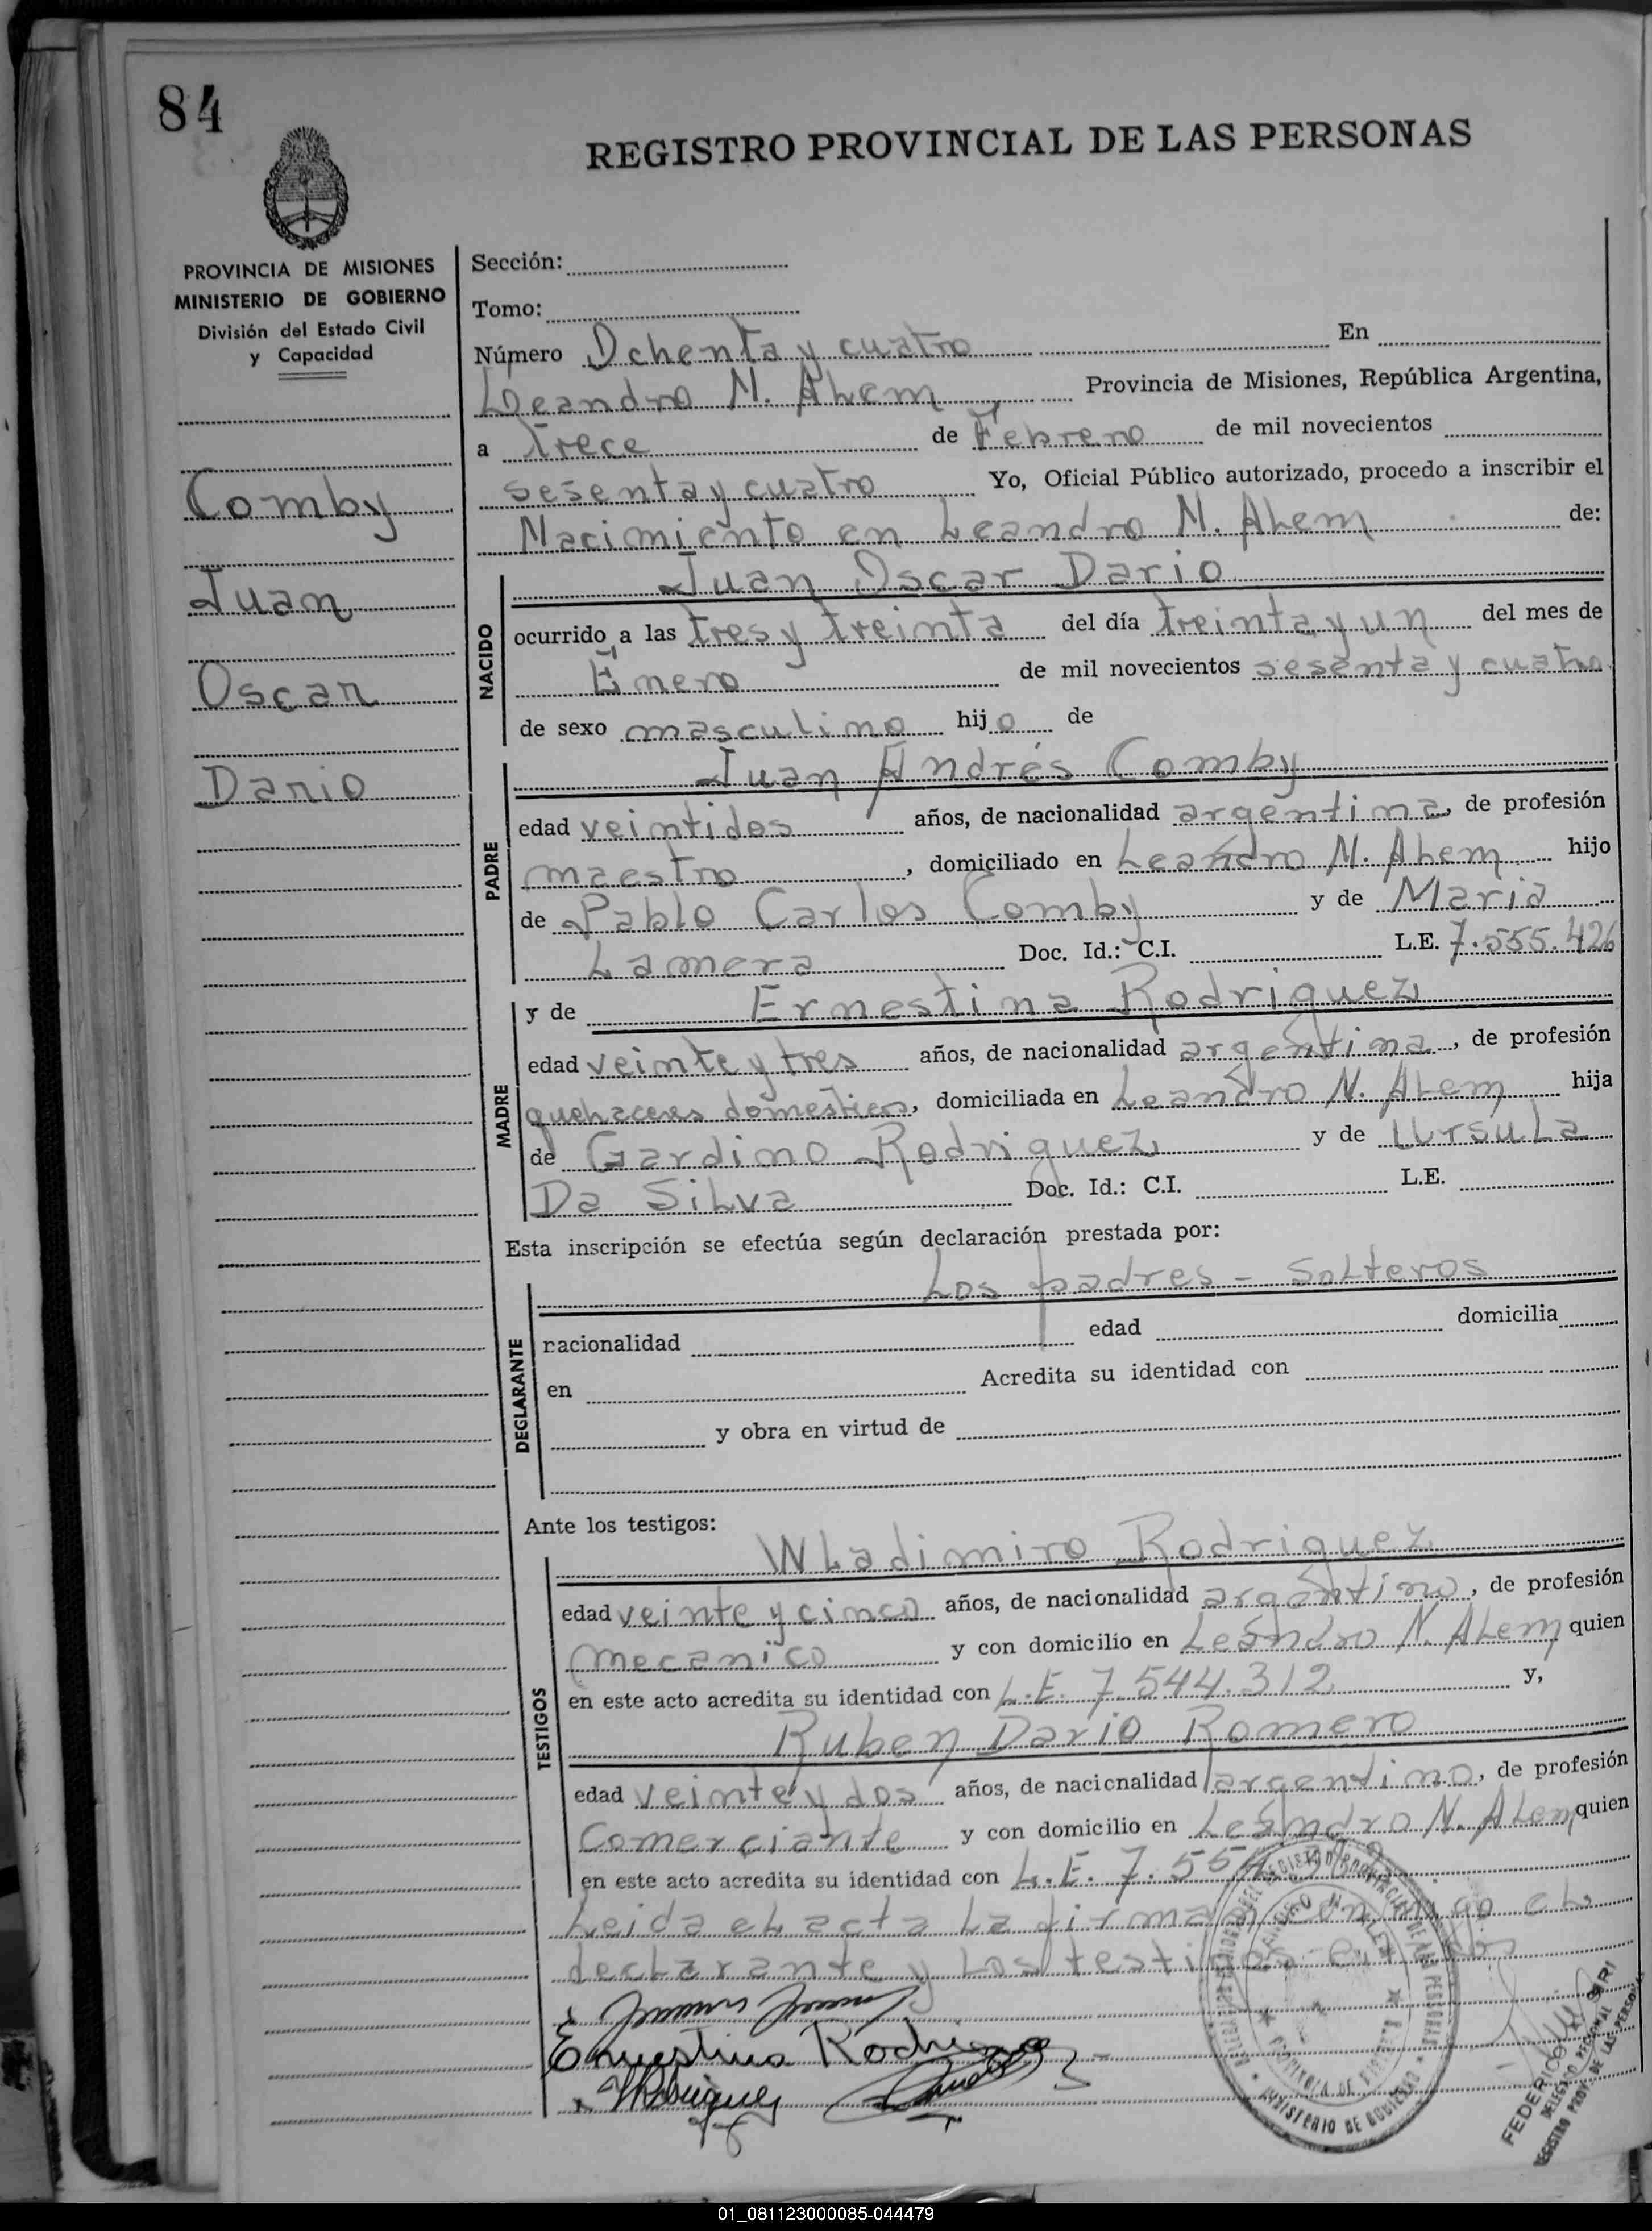 84
REGISTRO PROVINCIAL DE LAS PERSONAS
PROVINCIA DE MISIONES
MINISTERIO DE GOBIERNO
División del Estado Civil
y Capacidad
Comby
Juan
Oscar
Dario
Sección:
Tomo:
Número Ochenta y cuatro En
Leandro N. Alem Provincia de Misiones, República Argentina,
a trece de Febrero de mil novecientos
sesenta y cuatro Yo, Oficial Público autorizado, procedo a inscribir el
Nacimiento en Leandro N. Alem de:
Juan Oscar Dario
NACIDO
ocurrido a las tres y treinta del día treinta y un del mes de
Enero de mil novecientos sesenta y cuatro
de sexo masculino hijo de
Juan Andrés Comby
PADRE
edad veintidos años, de nacionalidad argentina, de profesión
maestro, domiciliado en Leandro N. Alem hijo
de Pablo Carlos Comby y de Maria
Lamera Doc. Id.: C.I. L.E. 7.555.426
y de Ernestina Rodriguez
MADRE
edad veinte y tres años, de nacionalidad argentina, de profesión
quehaceres domesticos, domiciliada en Leandro N. Alem hija
de Gardino Rodriguez y de Ursula
Da Silva Doc. Id.: C.I. L.E.
Esta inscripción se efectúa según declaración prestada por:
Los padres - Solteros
DECLARANTE
nacionalidad edad domicilia
en Acredita su identidad con
y obra en virtud de
Ante los testigos:
Wladimiro Rodriguez
TESTIGOS
edad veinte y cinco años, de nacionalidad argentino, de profesión
mecanico y con domicilio en Leandro N. Alem quien
en este acto acredita su identidad con L.E. 7.544.312 y,
Ruben Dario Romero
edad veinte y dos años, de nacionalidad argentino, de profesión
Comerciante y con domicilio en Leandro N. Alem quien
en este acto acredita su identidad con L.E.
Leida el acta la firman conmigo el
declarante y los testigos
Ernestina Rodriguez
WRodriguez
MINISTERIO DE GOBIERNO
FEDERICO
DELEGADO REGIONAL
REGISTRO PROV. DE LAS PERSONAS
01_081123000085-044479